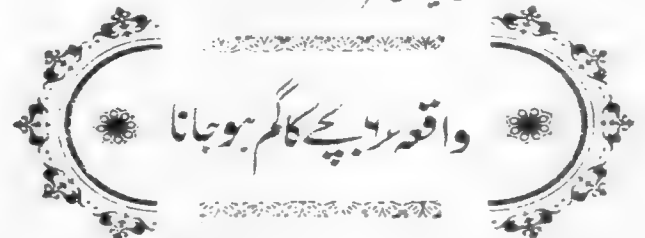 واقعہ ۶ بچے کا گم ہو جانا